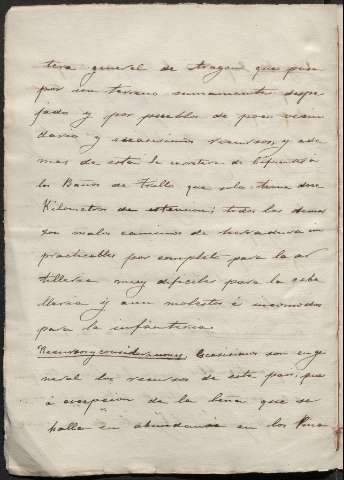 tera general de Aragon que pasa
por un terreno sumamente despe-
jado y por pueblos de poco vecin
dario y escasisimos recursos, y ade
mas de esta la carretera de Cifuentes á
los Baños de Trillo que solo tiene doce
Kilometros de estencion; todos los demas
son malos caminos de herradura im
practicables por completo para la ar
tilleria muy dificiles para la caba
lleria y aun molestos é incomodos
para la infanteria.
Recursos y consideraciones. Escasisimos son en ge
neral los recursos de este pais, que
á excepcion de la leña que se
halla en abundancia en los Pina